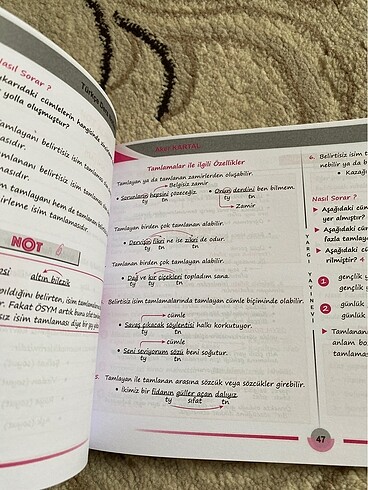 Nasıl Sorar ?
Türkçe Ders
karıdaki cümlelerin hangisinde
yolla oluşmuştur?
Tamlayanı belirtisiz isim
masıdır.
Tamlananı belirtisiz isim
masıdır.
m tamlayanı hem de tamlananı
irleme isim tamlamasıdır.
NOT 6
altın bilezik
pıldığını belirten, isim tamlamaları
r. Fakat ÖSYM artık buna sıfat
siz isim tamlaması diye bir
KARTAL
Tamlamalar ile ilgili Özellikler
Tamlayan ya da tamlanan zamirlerden oluşabilir.
Belgisiz zamir
• Sorunların hepsini çözeceğiz. • Onun derdini ben bilmem.
ty tn ty tn
Zamir
Tamlayan birden çok tamlanan alabilir.
• Dervişin fikri ne ise zikri de odur.
ty tn tn
Tamlanan birden çok tamlayan alabilir.
• Dağ ve kır çiçekleri topladım sana.
ty ty tn
Belirtisiz isim tamlamalarında tamlayan cümle biçiminde olabilir.
cümle
• Savaş çıkacak söylentisi halkı korkutuyor.
ty tn
cümle
• Seni seviyorum sözü beni soğutur.
ty tn
5. Tamlayan ile tamlanan arasına sözcük veya sözcükler girebilir.
• İkimiz bir fidanın güller açan dalıyız.
ty sıfat tn
47
YARGI YAYINEVİ
6. Belirtisiz isim
nebilir ya da b
• Kazağı
Nasıl Sorar ?
Aşağıdaki cüm
yer almıştır?
Aşağıdaki cü
fazla tamlay
Aşağıdaki
rilmiştir?
1 gençlik
gençlik y
2 günlük
günlük
Tamlanan
anlam boz
tamlama